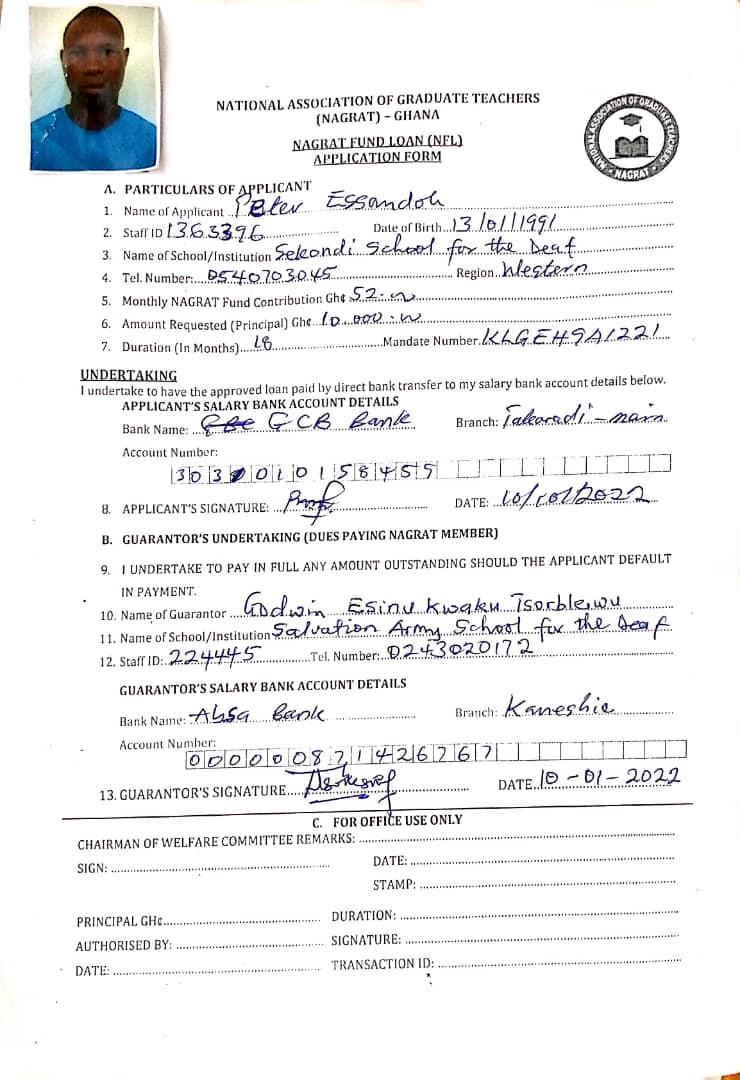 NATIONAL ASSOCIATION OF GRADUATE TEACHERS
(NAGRAT) – GHANA
NAGRAT FUND LOAN (NFL)
APPLICATION FORM
NATIONAL ASSOCIATION OF GRADUATE TEACHERS
NAGRAT
A. PARTICULARS OF APPLICANT
1. Name of Applicant Peter Essandoh
2. Staff ID 1363396 Date of Birth 13/01/1991
3. Name of School/Institution Sekondi School for the Deaf
4. Tel. Number: 0540703045 Region Western
5. Monthly NAGRAT Fund Contribution Gh¢ 52.00
6. Amount Requested (Principal) Gh¢ 10.000.00
7. Duration (In Months) 18 Mandate Number. KLGEH9A1221
UNDERTAKING
I undertake to have the approved loan paid by direct bank transfer to my salary bank account details below.
APPLICANT'S SALARY BANK ACCOUNT DETAILS
Bank Name: GCB Bank Branch: Takoradi - main
Account Number:
30301010158455
8. APPLICANT'S SIGNATURE: DATE: 10/01/2022
B. GUARANTOR'S UNDERTAKING (DUES PAYING NAGRAT MEMBER)
9. I UNDERTAKE TO PAY IN FULL ANY AMOUNT OUTSTANDING SHOULD THE APPLICANT DEFAULT
IN PAYMENT.
10. Name of Guarantor Godwin Esinu Kwaku Tsorblewu
11. Name of School/Institution Salvation Army School for the Deaf
12. Staff ID: 224445 Tel. Number: 0243020172
GUARANTOR'S SALARY BANK ACCOUNT DETAILS
Bank Name: Absa Bank Branch: Kaneshie
Account Number:
000000871426767
13. GUARANTOR'S SIGNATURE DATE 10-01-2022
C. FOR OFFICE USE ONLY
CHAIRMAN OF WELFARE COMMITTEE REMARKS:
SIGN: DATE:
STAMP:
PRINCIPAL GH¢ DURATION:
AUTHORISED BY: SIGNATURE:
DATE: TRANSACTION ID: